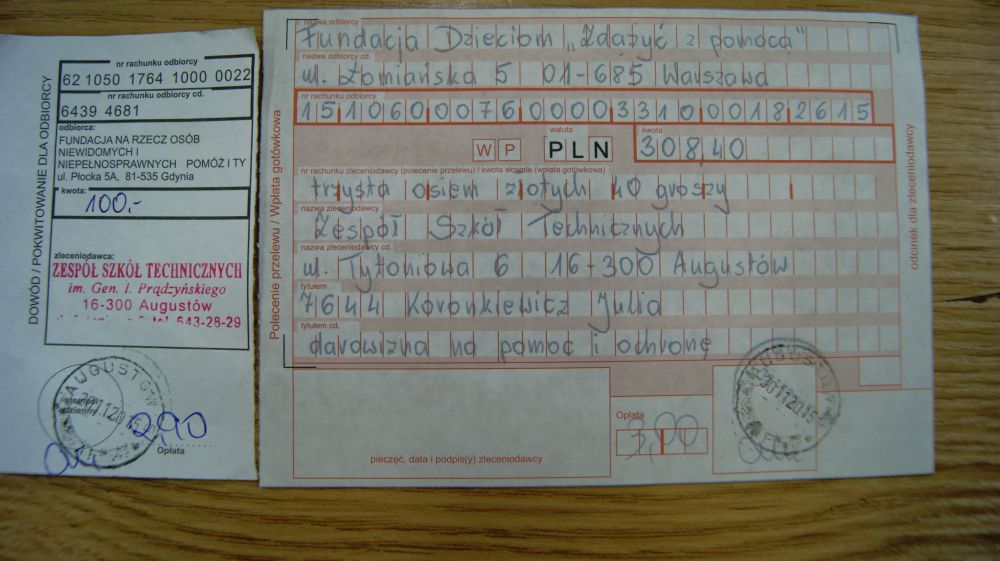 DOWÓD / POKWITOWANIE DLA ODBIORCY
nr rachunku odbiorcy
62 1050 1764 1000 0022
nr rachunku odbiorcy cd.
6439 4681
odbiorca:
FUNDACJA NA RZECZ OSÓB
NIEWIDOMYCH I
NIEPEŁNOSPRAWNYCH POMÓŻ I TY
ul. Płocka 5A, 81-535 Gdynia
kwota:
100,-
zleceniodawca:
ZESPÓŁ SZKÓŁ TECHNICZNYCH
im. Gen. I. Prądzyńskiego
16-300 Augustów
643-28-29
AUGUSTÓW
stempel
dzienny
2,90
Opłata
Polecenie przelewu / Wpłata gotówkowa
nazwa odbiorcy
Fundacja Dzieciom „Zdążyć z pomocą"
nazwa odbiorcy cd.
ul. Łomiańska 5 01-685 Warszawa
nr rachunku odbiorcy
15106000760000331000182615
waluta
kwota
WP PLN 308,40
nr rachunku zleceniodawcy (polecenie przelewu) / kwota słownie (wpłata gotówkowa)
trzysta osiem złotych 40 groszy
nazwa zleceniodawcy
Zespół Szkół Technicznych
nazwa zleceniodawcy cd.
ul. Tytoniowa 6 16-300 Augustów
tytułem
7644 Koronkiewicz Julia
tytułem cd.
darowizna na pomoc i ochronę
odcinek dla zleceniodawcy
Opłata
3,00
pieczęć, data i podpis(y) zleceniodawcy